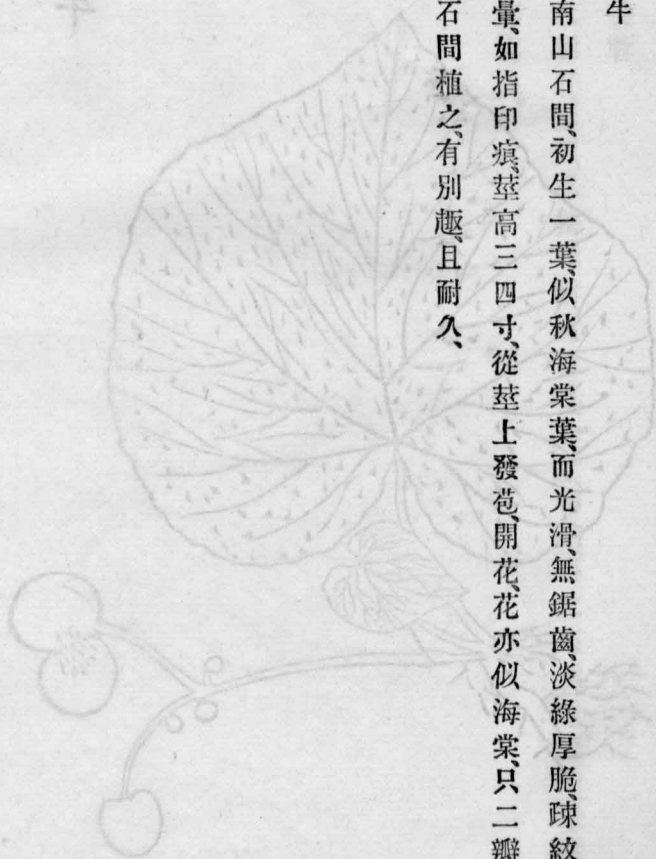 牛
南山石間、初生一葉、似秋海棠葉、而光滑、無鋸齒、淡綠厚脆、踈紋
暈、如指印痕、莖高三四寸、從莖上發苞、開花、花亦似海棠、只二瓣
石間植之、有別趣、且耐久、